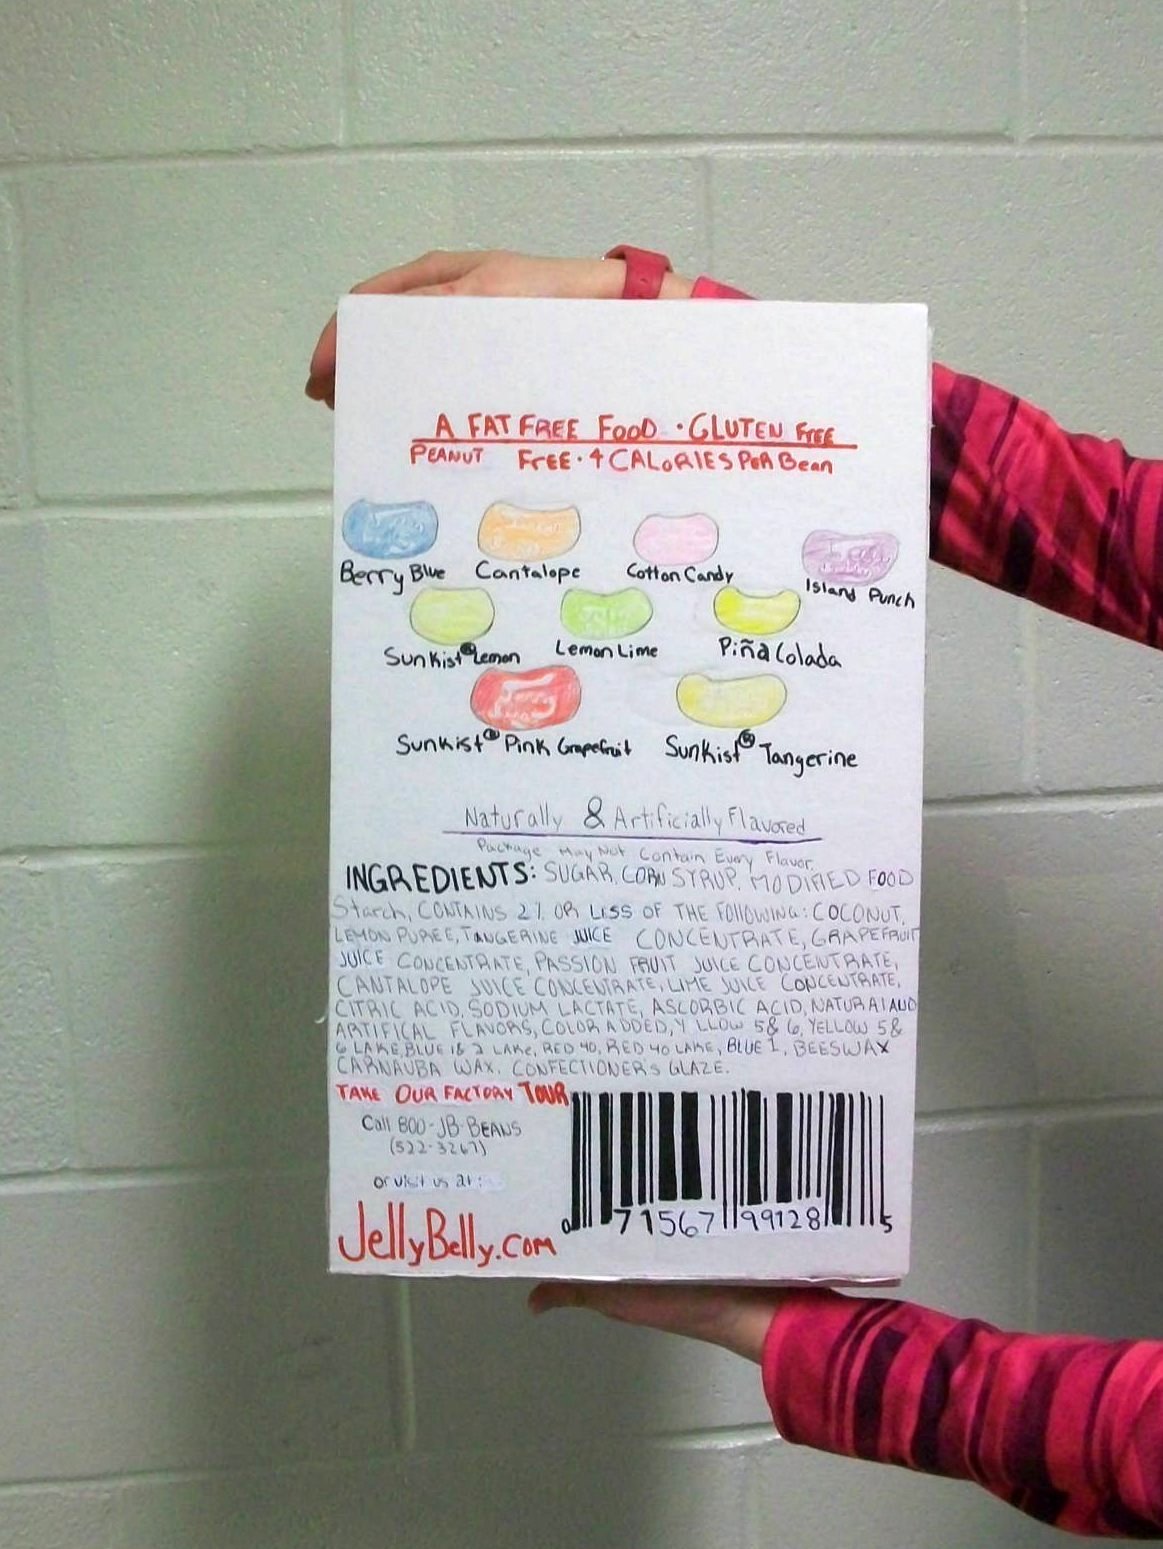 A FAT FREE FOOD · GLUTEN FREE
PEANUT FREE · 4 CALORIES PER Bean
Berry Blue Cantalope Cotton Candy Island Punch
Sunkist® Lemon Lemon Lime Piña Colada
Sunkist® Pink Grapefruit Sunkist® Tangerine
Naturally & Artificially Flavored
Package May Not Contain Every Flavor.
INGREDIENTS: SUGAR, CORN SYRUP, MODIFIED FOOD
Starch, CONTAINS 2% OR LISS OF THE FOLLOWING: COCONUT,
LEMON PUREE, TANGERINE JUICE CONCENTRATE, GRAPEFRUIT
JUICE CONCENTRATE, PASSION FRUIT JUICE CONCENTRATE,
CANTALOPE JUICE CONCENTRATE, LIME JUICE CONCENTRATE,
CITRIC ACID, SODIUM LACTATE, ASCORBIC ACID, NATURAL AND
ARTIFICAL FLAVORS, COLOR ADDED, Y LLOW 5 & 6, YELLOW 5 &
6 LAKE, BLUE 1 & 2 LAKE, RED 40, RED 40 LAKE, BLUE 1, BEESWAX
CARNAUBA WAX, CONFECTIONERS GLAZE.
TAKE OUR FACTORY TOUR
Call 800-JB-BEANS
(522-3267)
or visit us at:
JellyBelly.com
0 71567 99128 5